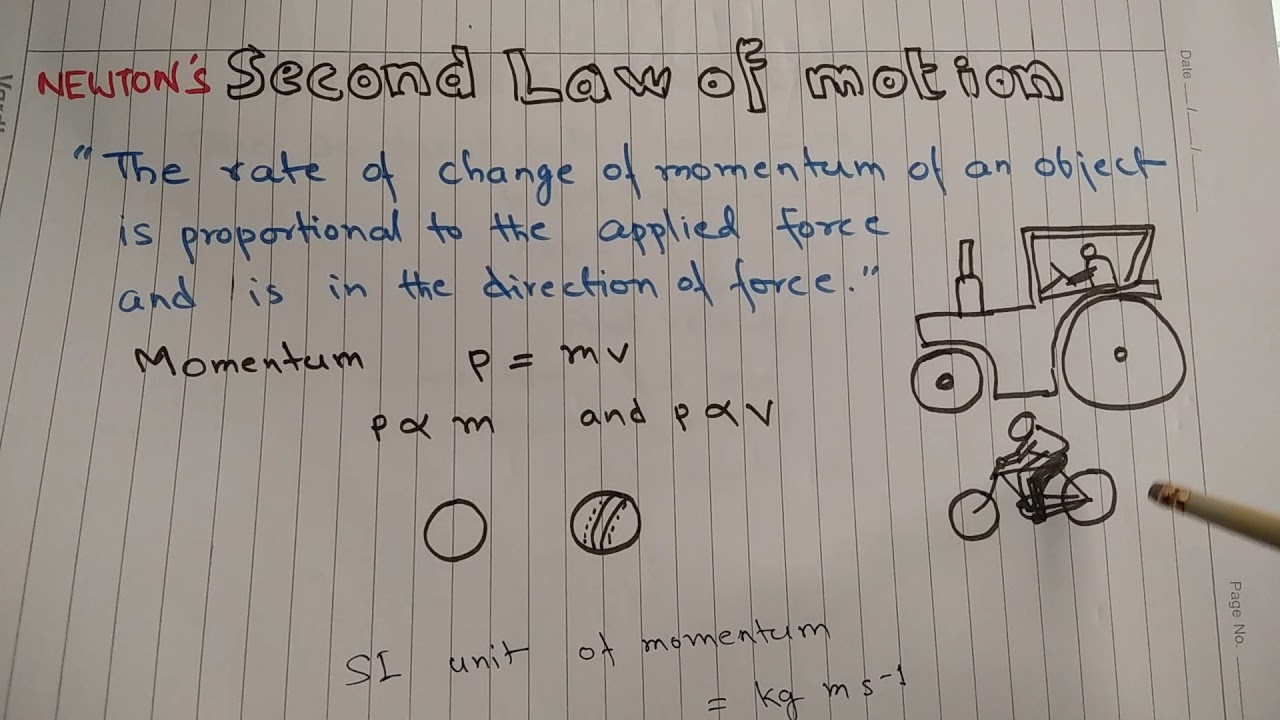 NEWTON'S Second Law of motion
"The rate of change of momentum of an object
is proportional to the applied force
and is in the direction of force."
Momentum p = mv
p ∝ m and p ∝ v
SI unit of momentum
= kg m s⁻¹
Date __/__/__
Page No.